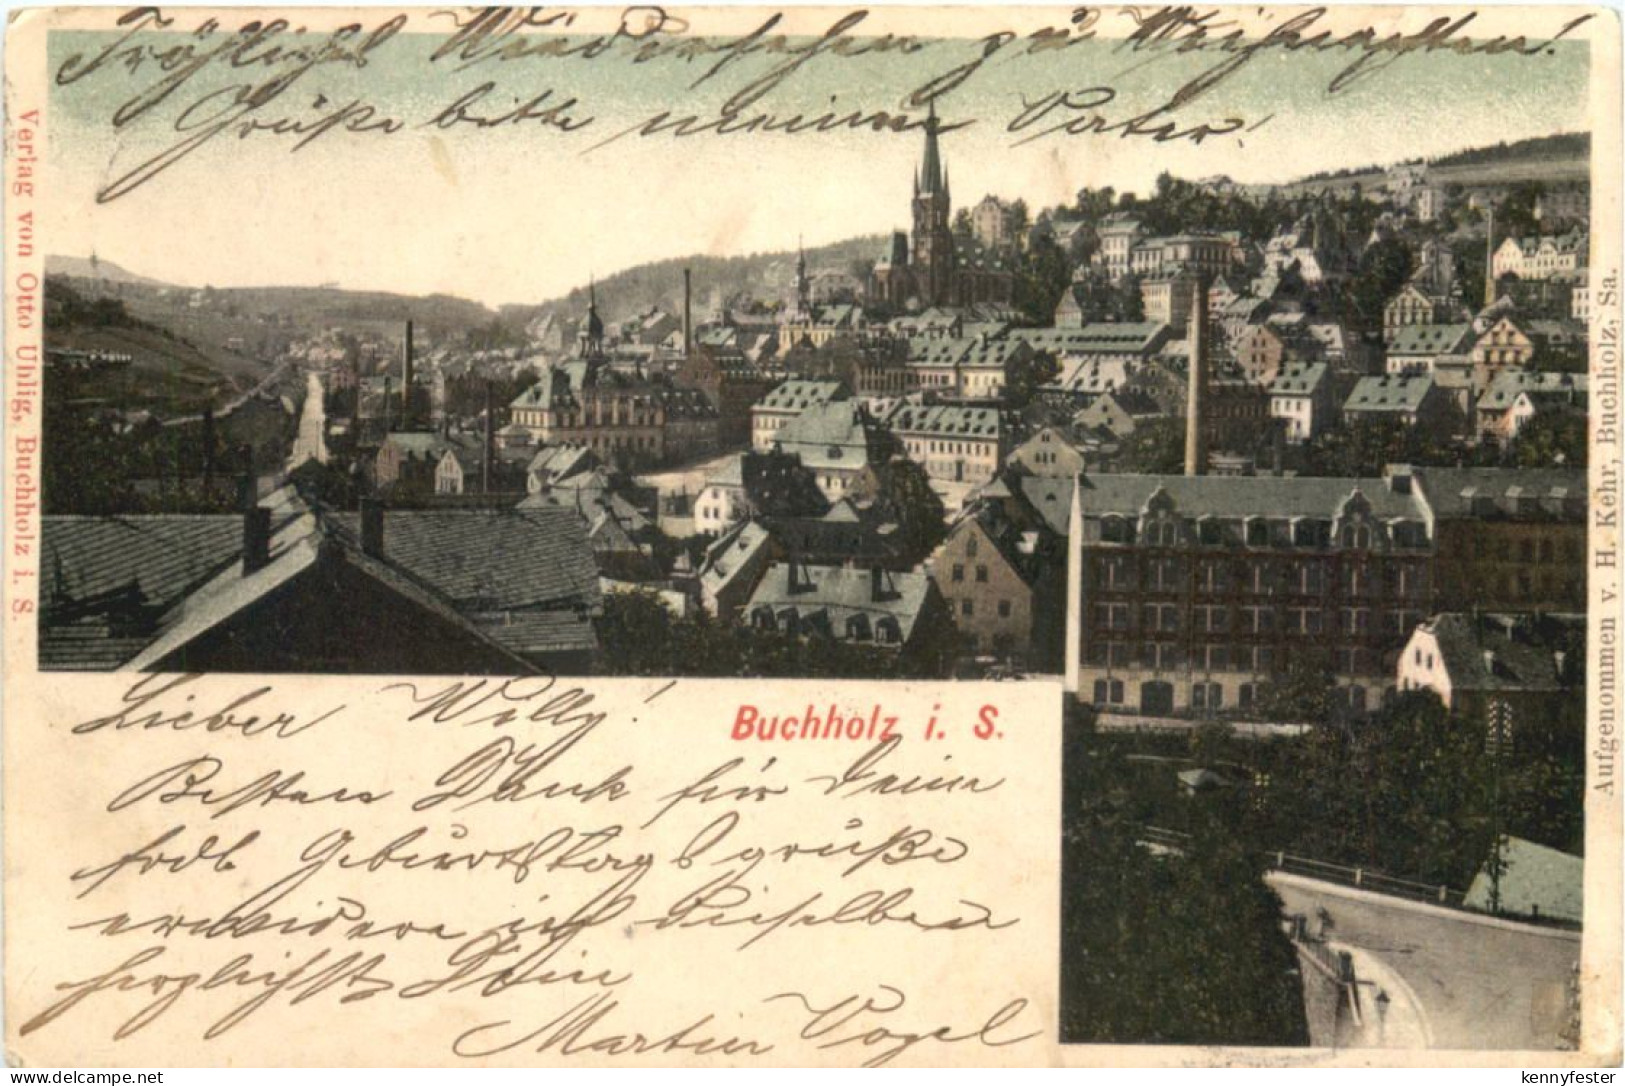 Fröhliches Wiedersehen zu Weihnachten!
Grüße bitte meinen Vater!
Verlag von Otto Uhlig, Buchholz i. S.
Aufgenommen v. H. Kehr, Buchholz, Sa.
Buchholz i. S.
Lieber Willy!
Besten Dank für Deine
frdl. Geburtstagsgrüße
erwidere ich dieselben
herzlichst Dein
Martin Vogel
delcampe.net
kennyfester